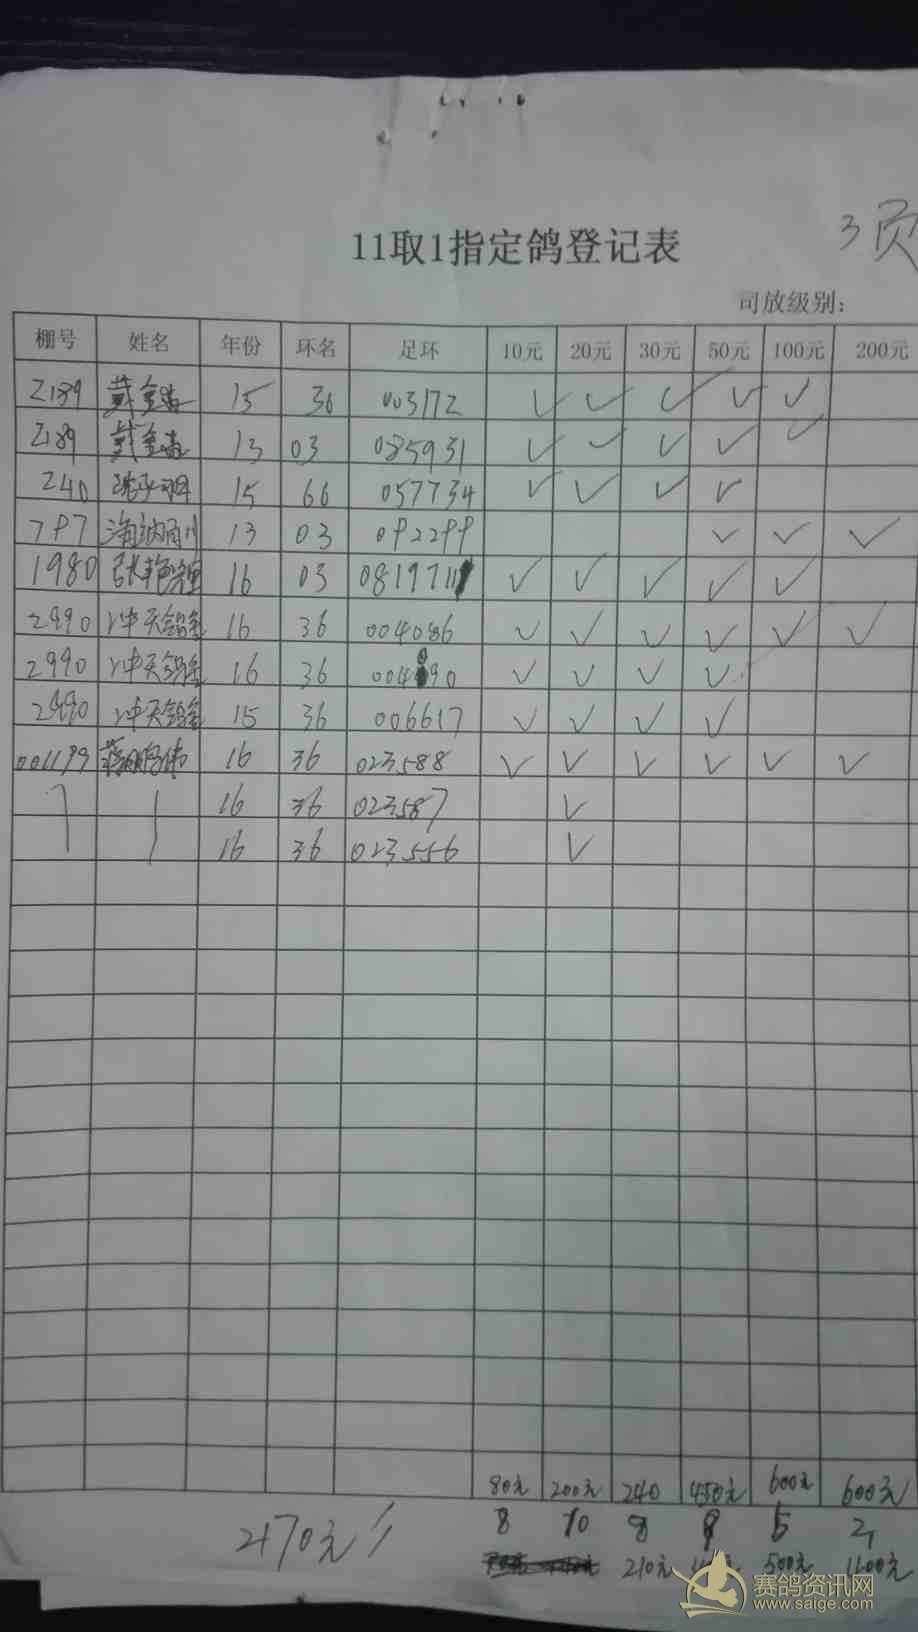 3页
11取1指定鸽登记表
司放级别:
棚号 姓名 年份 环名 足环 10元 20元 30元 50元 100元 200元
2189 戴金 15 36 003172 ✓ ✓ ✓ ✓ ✓
2189 戴金 13 03 085931 ✓ ✓ ✓ ✓ ✓
240 15 66 057734 ✓ ✓ ✓ ✓
797 海纳百川 13 03 092299 ✓ ✓ ✓
1980 张艳 16 03 0819711 ✓ ✓ ✓ ✓ ✓
2990 冲天鸽舍 16 36 004086 ✓ ✓ ✓ ✓ ✓ ✓
2990 冲天鸽舍 16 36 004090 ✓ ✓ ✓ ✓
2990 冲天鸽舍 15 36 006617 ✓ ✓ ✓ ✓
001199 16 36 023588 ✓ ✓ ✓ ✓ ✓ ✓
16 36 023587 ✓
16 36 023556 ✓
80元 200元 240 450元 600元 600元
8 10 8 9 5 2
2170元
210元 500元
赛鸽资讯网
www.saige.com